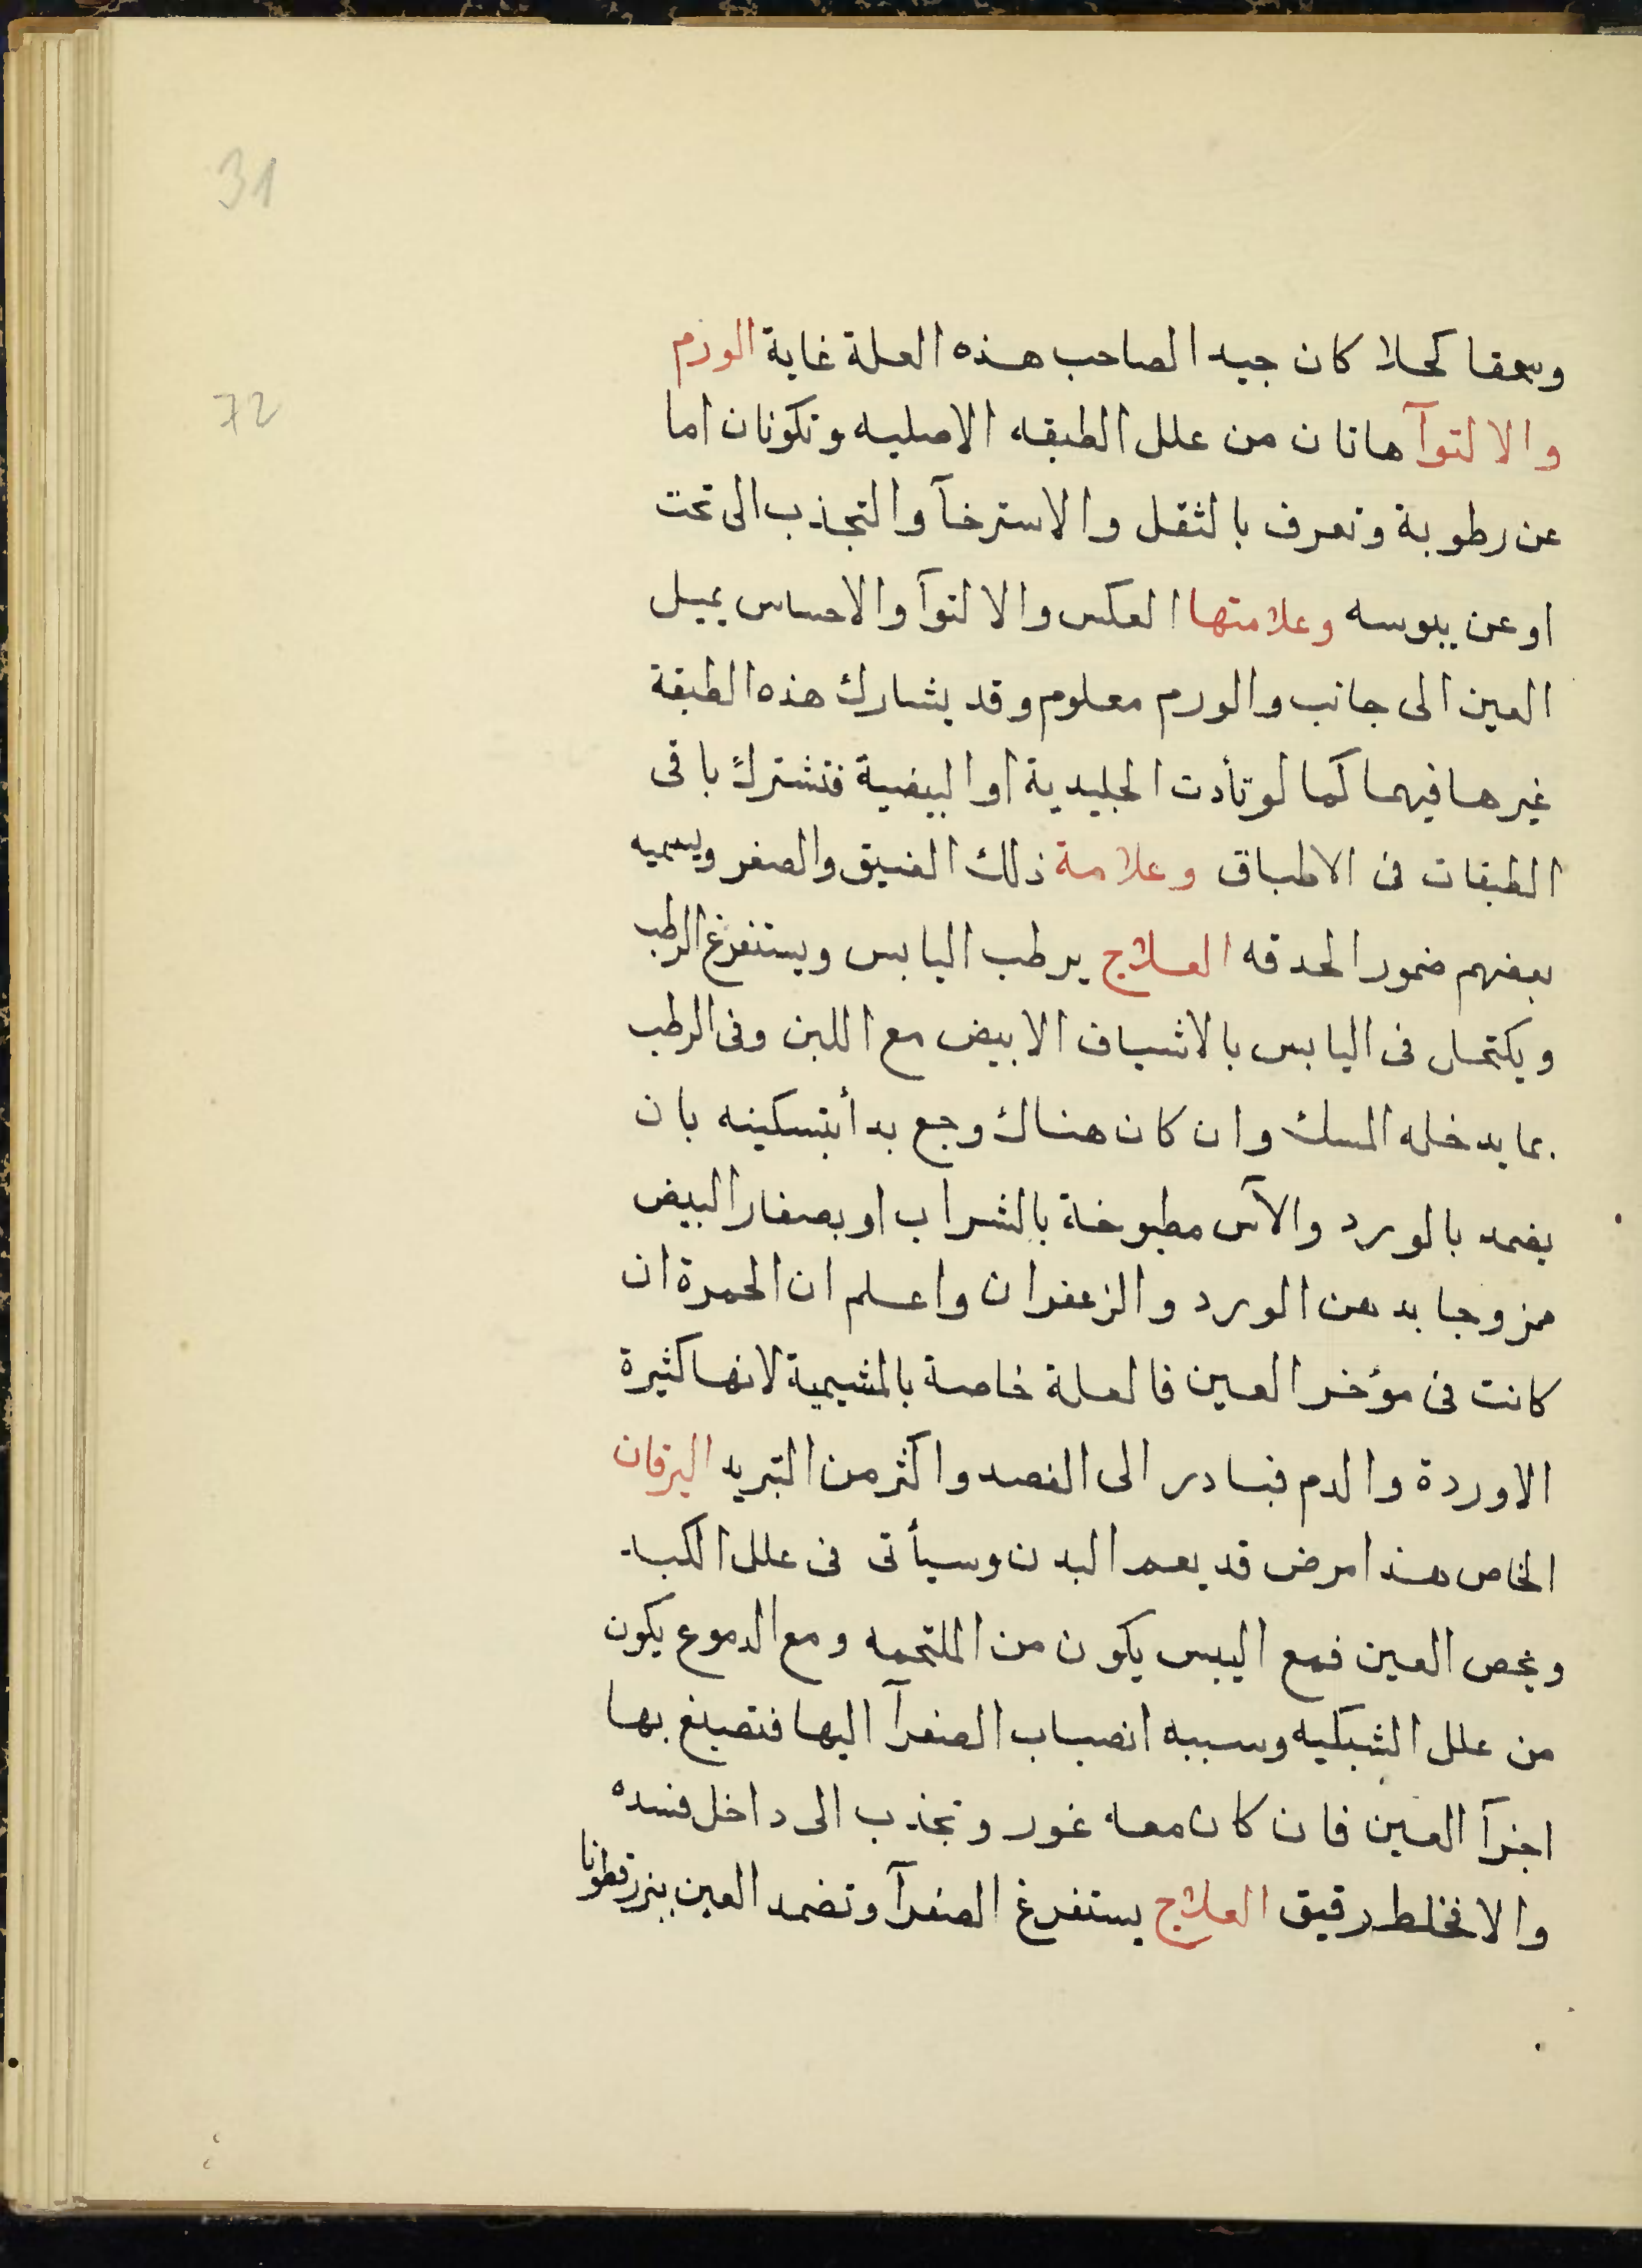 31
72
وسحقا كحلا كان جيد الصاحب هذه العلة غاية الورم
والالتوآ هاتان من علل الطبقه الاصليه وتكونان اما
عن رطوبة وتعرف بالثقل والاسترخآ والتجذب الى تحت
او عن يبوسه وعلامتها العكس والالتوآ والاحساس بميل
العين الى جانب والورم معلوم وقد يشارك هذه الطبقة
غيرها فيهما كما لو تأدت الجليدية او البيضية فتشترك باقى
الطبقات فى الاطباق وعلامة ذلك الضيق والصغر ويسميه
بعضهم ضمور الحدقه العلاج يرطب اليابس ويستفرغ الرطب
ويكتحل فى اليابس بالاشياف الابيض مع اللبن وفى الرطب
بما يدخله المسك وان كان هناك وجع بدأ بتسكينه بان
يضمد بالورد والآس مطبوخة بالشراب او بصفار البيض
ممزوجا بدهن الورد والزعفران واعلم ان الحمرة ان
كانت فى مؤخر العين فالعلة خاصة بالمشيمية لانها كثيرة
الاوردة والدم فبادر الى الفصد واكثر من التبريد اليرقان
الخاص هذا مرض قد يعم البدن وسيأتى فى علل الكبد
ويخص العين فمع اليبس يكون من الملتحمه ومع الدموع يكون
من علل الشبكيه وسببه انصباب الصفرآ اليها فتصبغ بها
اجزآ العين فان كان معه غور وتجذب الى داخل فسده
والا فخلط رقيق العلاج يستفرغ الصفرآ وتضمد العين ببزرقطونا